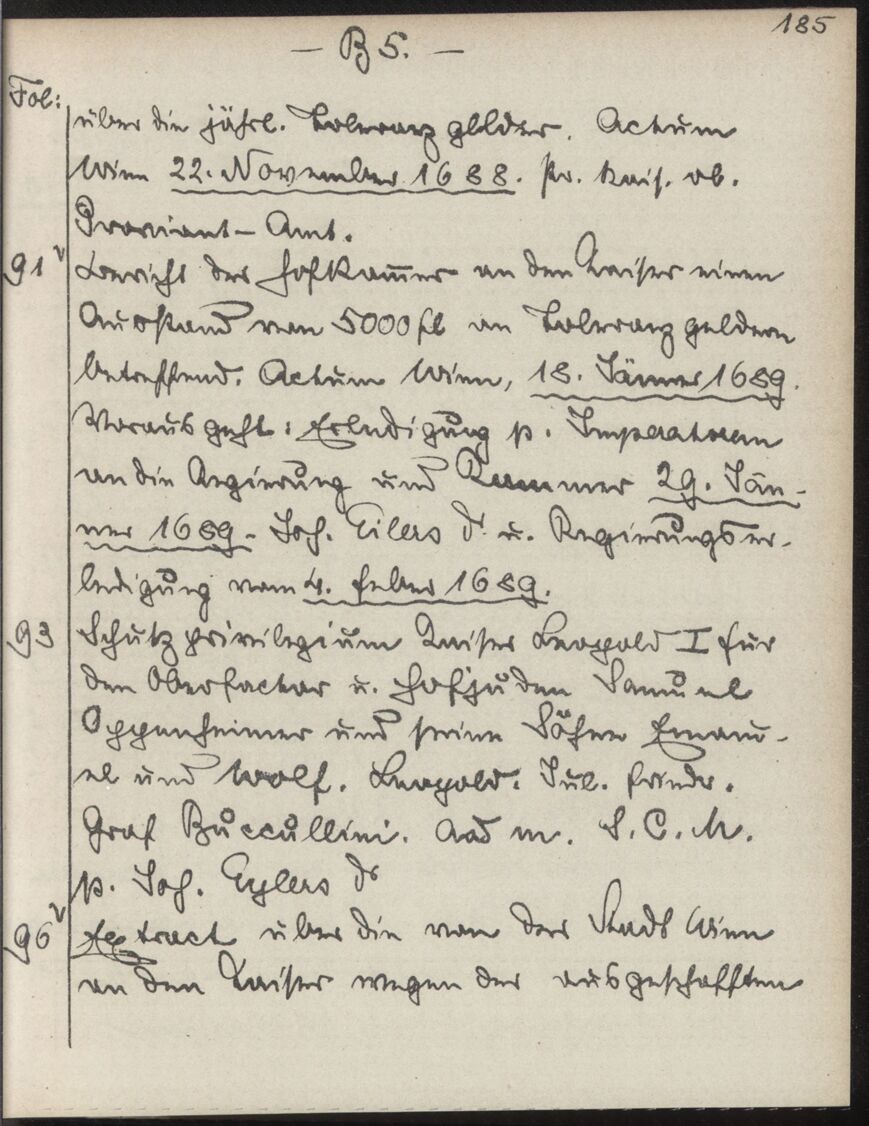 185
— B 5. —
Fol:
über die jährl. Toleranzgelder. Actum
Wien 22. November 1688. Pr. kais. ob.
Proviant-Amt.
91v Bericht der Hofkam̄er an den Kaiser einen
Ausstand von 5000 fl an Toleranzgeldern
betreffend. Actum Wien, 18. Jänner 1689.
Vorausgeht: Erledigung p. Imperatorem
an die Regierung und Kammer 29. Jän-
ner 1689. Joh. Eilers dr u. Regierungser-
ledigung vom 4. Feber 1689.
93 Schutzprivilegium Kaiser Leopold I für
den Oberfactor u. Hofjuden Samuel
Oppenheimer und seine Söhne Emanu-
el und Wolf. Leopold. Jul. Friedr.
Graf Buccullini. Aad m. S. C. M.
p. Joh. Eylers dr
96v Extract über die von der Stadt Wien
an den Kaiser wegen der ausgeschafften